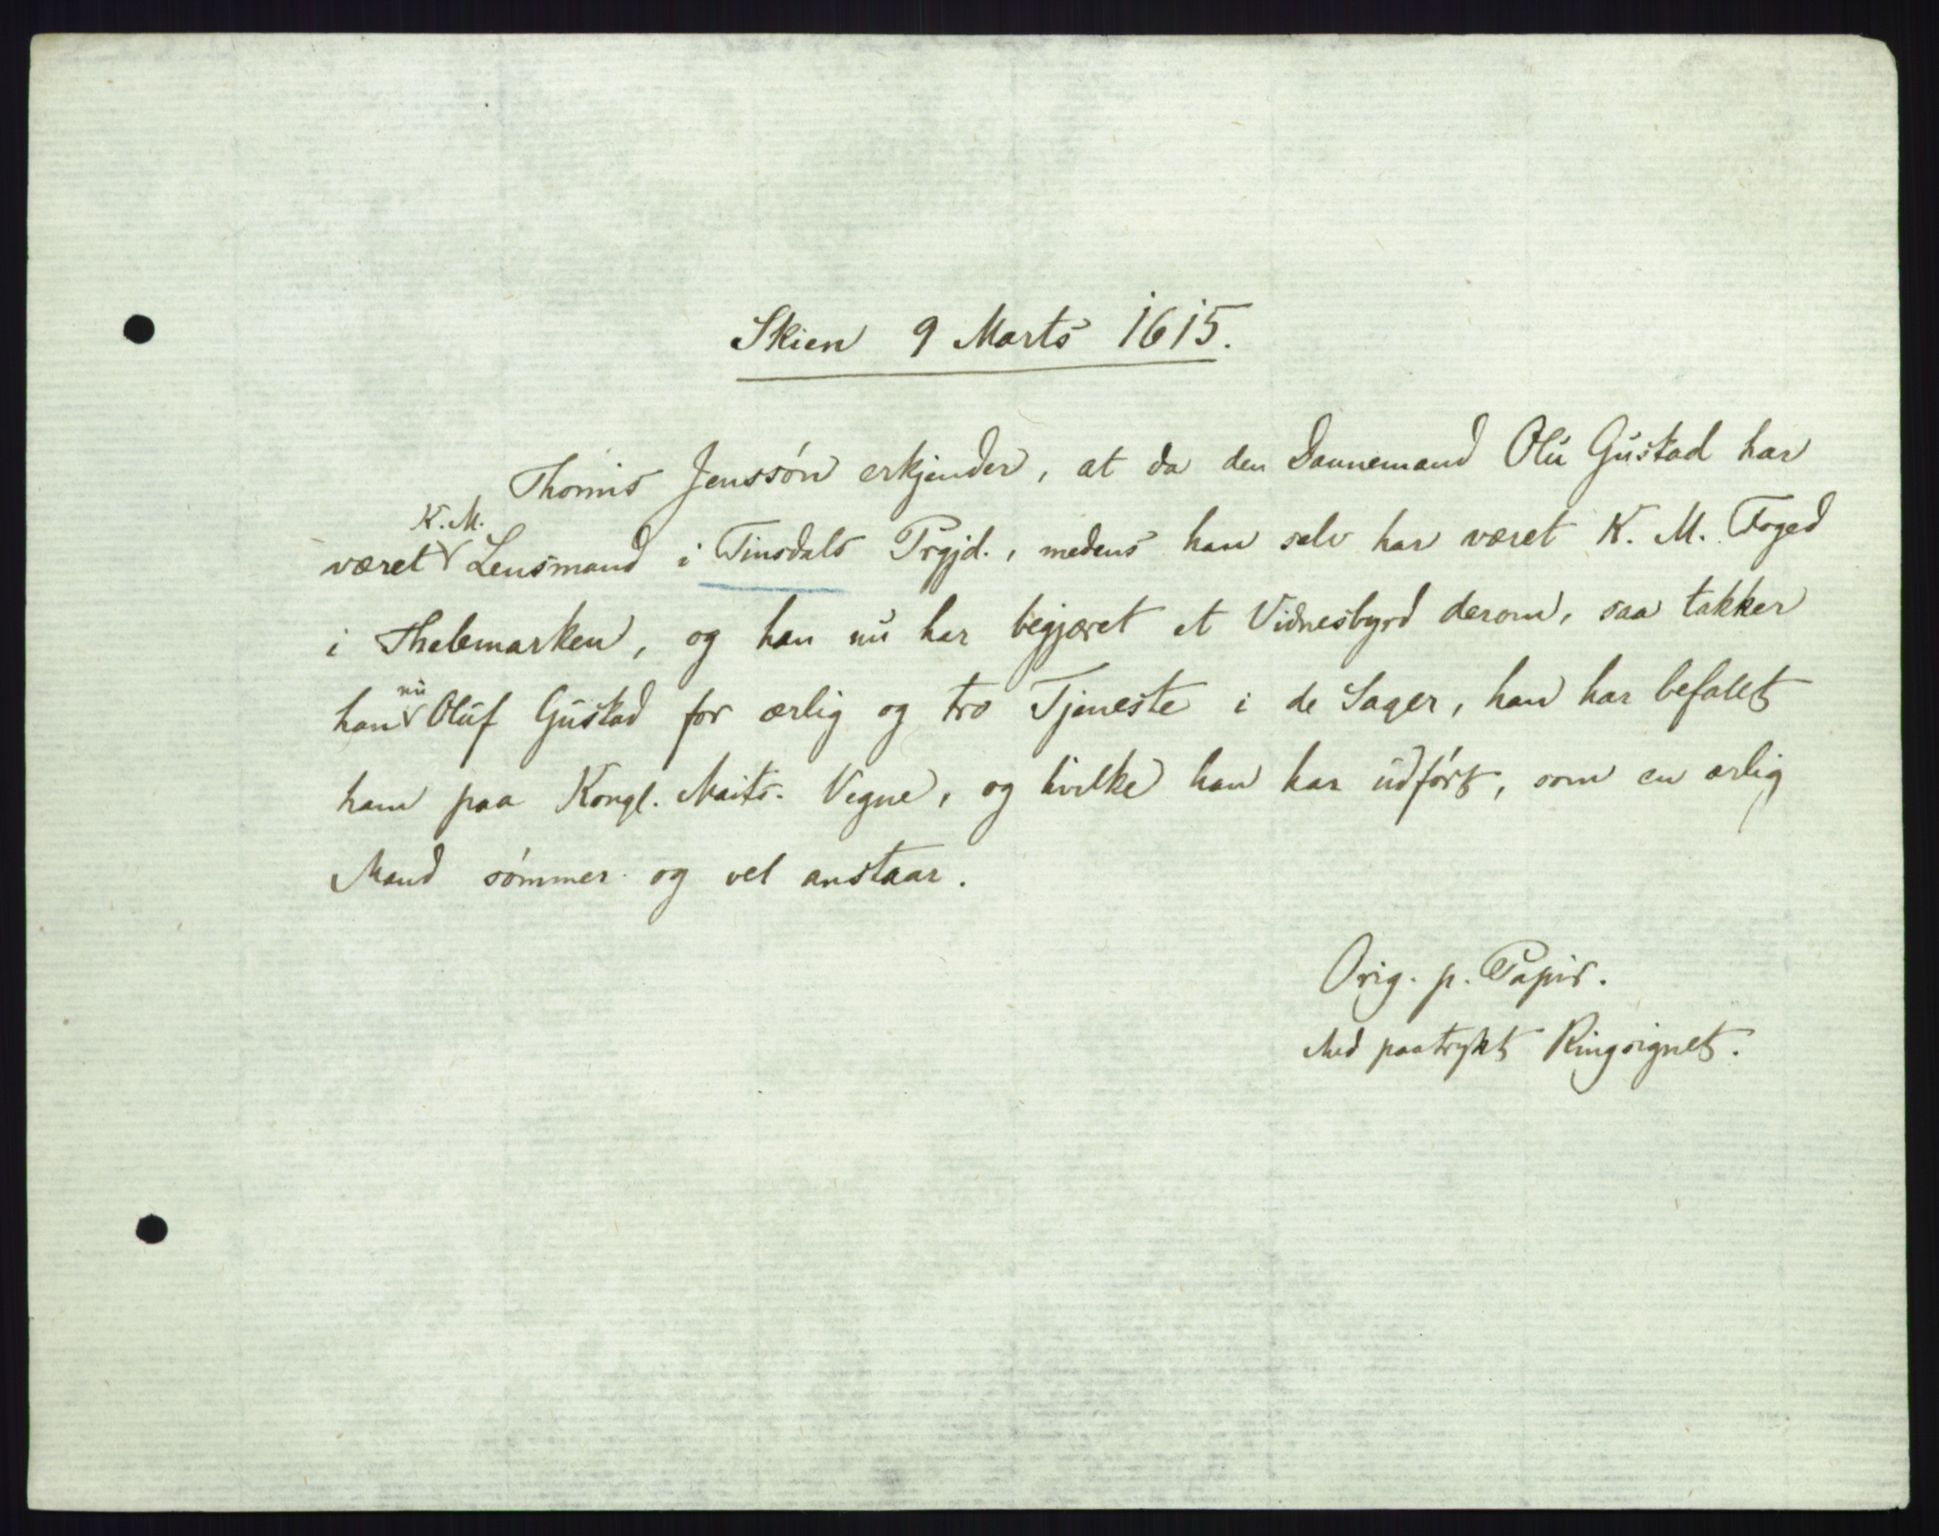 Skien 9 Marts 1615.
Thomis Jenssøn erkjender, at da den Dannemand Olu Gustad har
været K. M. Lensmand i Tinsdals Prgjd., medens han selv har været K. M. Foged
i Thelemarken, og han nu har begjæret et Vidnesbyrd derom, saa takker
han nu Oluf Gustad for ærlig og tro Tjeneste i de Sager, han har befalet
ham paa Kongl. Maits. Vegne, og hvilke han har udført, som en ærlig
Mand sømmer og vel anstaar.
Orig. p. Papir.
Med paatrykt Ringsignet.